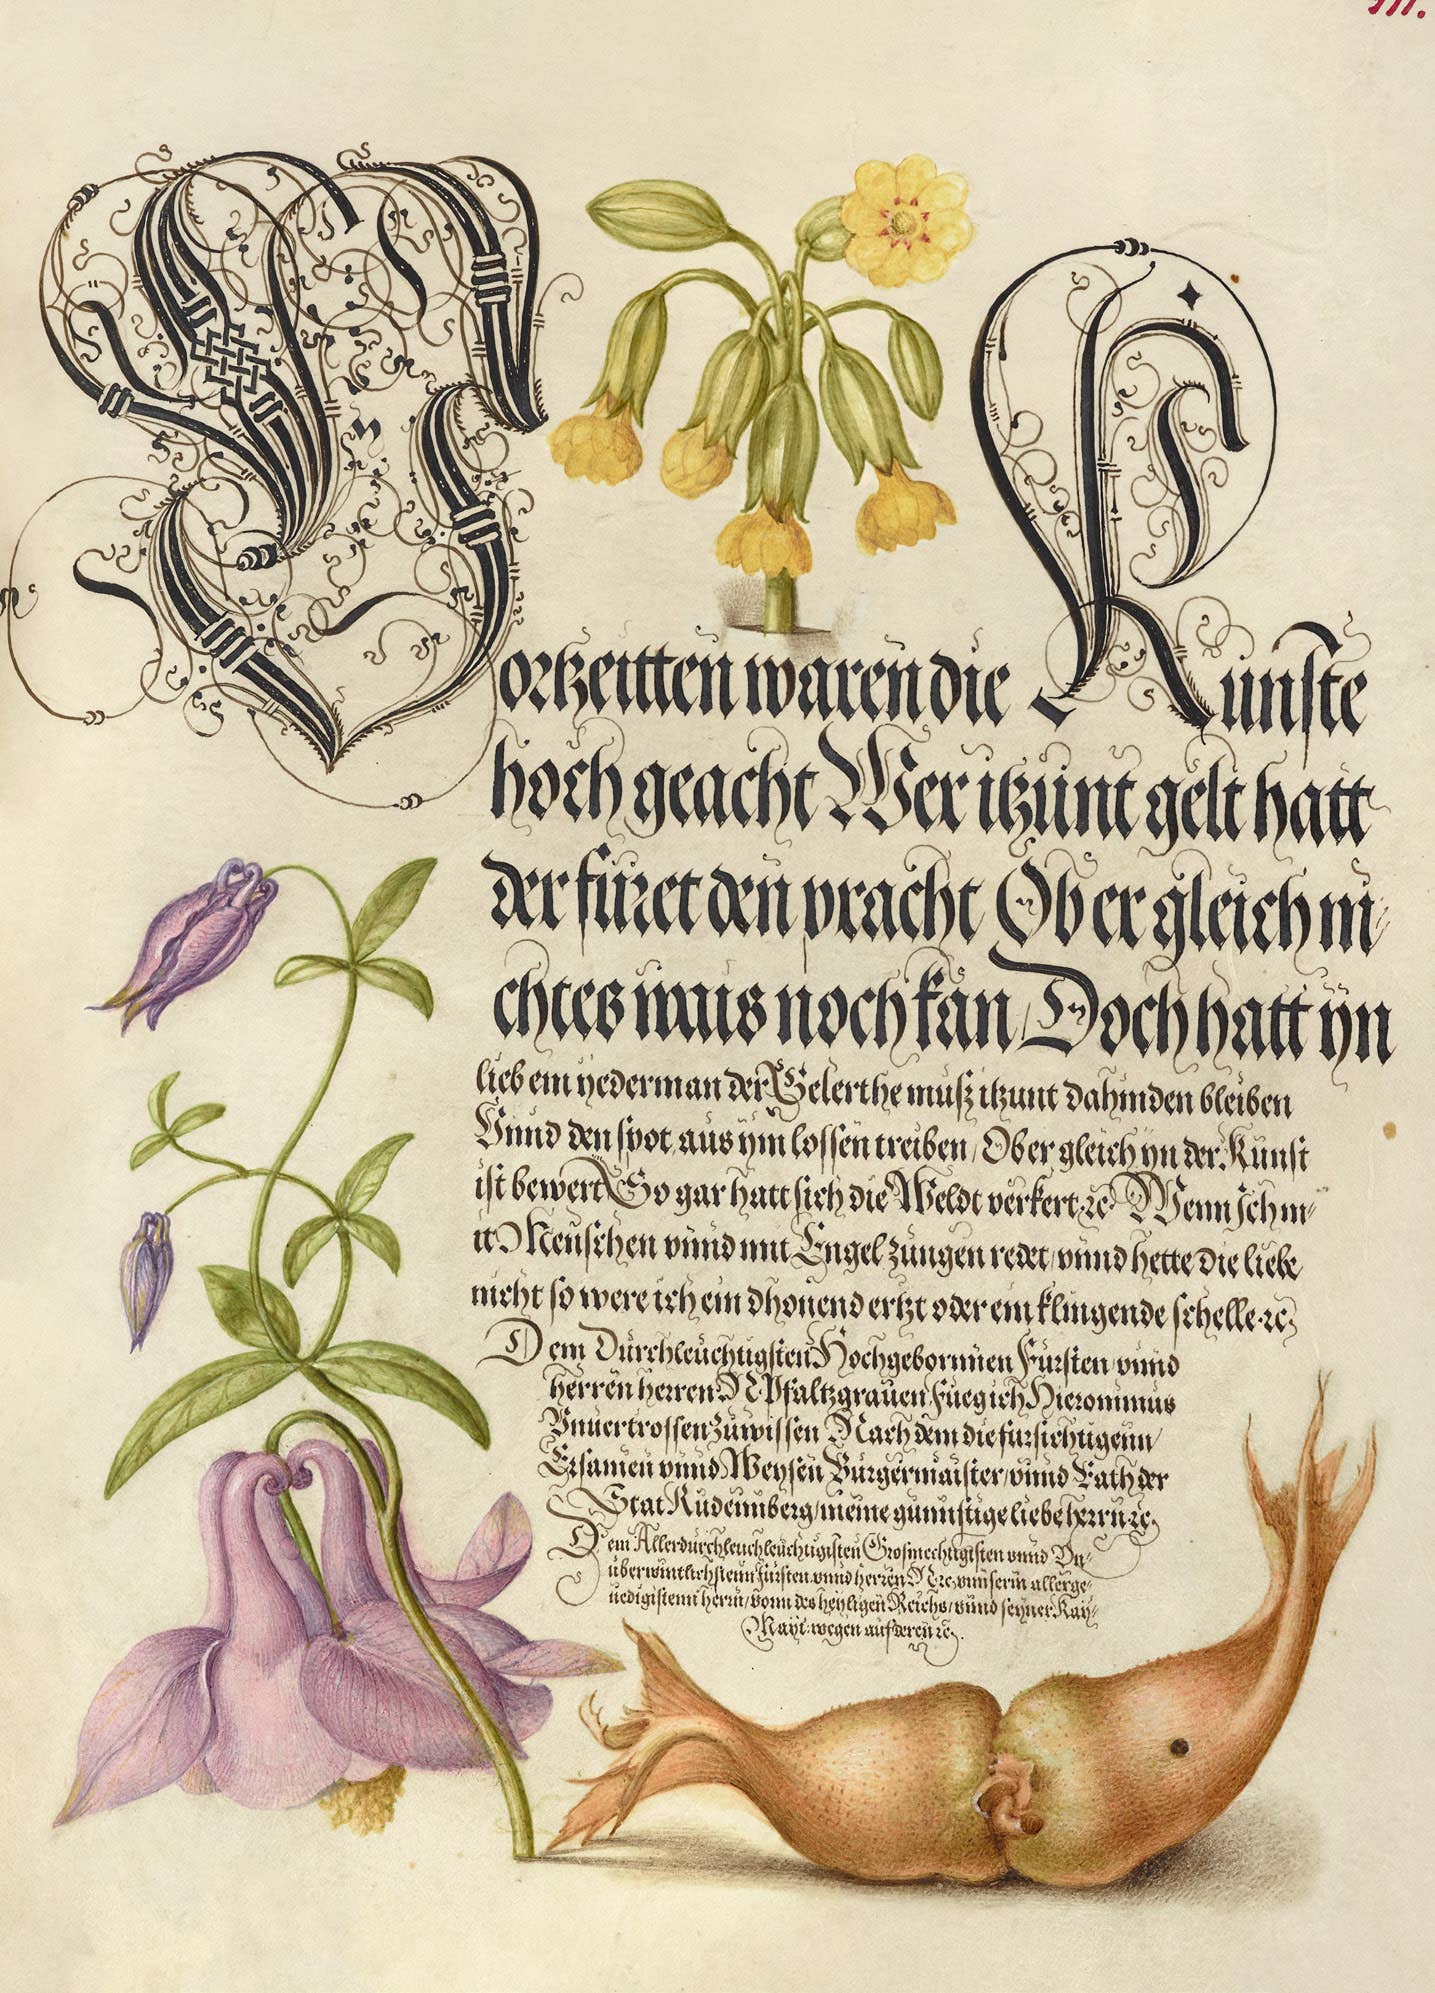 111.
Vortzeitten waren die Kunste
hoch geacht Wer itzunt gelt hatt
der furet den pracht Ob er gleich ni-
chtes wais noch kan, Doch hatt yn
lieb ein yederman der Gelerthe musz itzunt dahinden bleiben
Vnnd den spot aus ym lossen treiben, Ob er gleich yn der Kunst
ist bewert So gar hatt sich die Weldt verkert ⁊c Wenn Ich m-
it Menschen vnnd mit Engel zungen redet, vnnd hette die liebe
nicht so were ich ein dhonend ertzt oder ein klingende schelle ⁊c
Dem Durchleuchtigsten Hochgebornnen Fursten vnnd
herren herren N Pfaltzgrauen Hieronimus
Vnuertrossen zuwissen Nach dem die fursichtigenn
Ersamen vnnd Weysen Burgermaister vnnd Rath der
Stat meine gunnstige liebe herrn ⁊c
Dem Grosmechtigisten vnnd Vn-
uberwintlichstenn fursten vnnd herren N ⁊c vnnserm allerge-
nedigistenn herrn, vonn des heyligen Reichs, vnnd seyner Kay-
Mayt: wegen aufderen ⁊c.